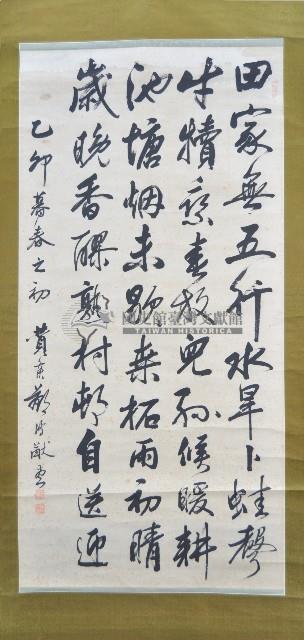 田家無五行水旱卜蛙聲
牛犢乘春放兒孫候暖耕
池塘烟未起桑柘雨初晴
歲晚香醪熟村邨自送迎
乙卯暮春之初 鄭 書
國史館臺灣文獻館
TAIWAN HISTORICA